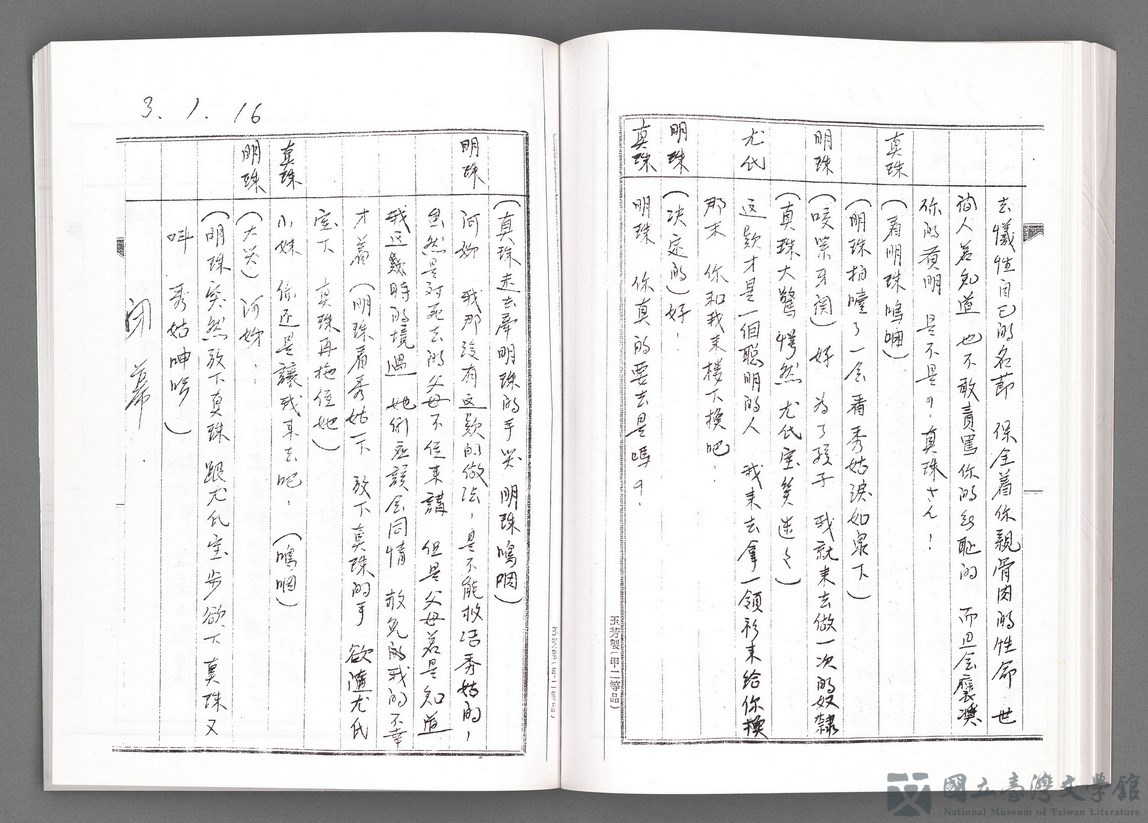 去犧牲自己的名節 保全着你親骨肉的性命 世
間人若知道 也不敢責罵你的 而且会褒獎
你的賢明 是不是？真珠さん！
真珠 (看明珠嗚咽)
(明珠拍噎了一会看秀姑淚如泉下)
明珠 (咬緊牙関) 好 為了孩子 我就来去做一次的奴隸
(真珠大驚愕然 尤氏宝笑迷々)
尤氏 這款才是一個聡明的人 我来去拿一領衫来給你換
那末 你和我来楼下換吧．
明珠 (决定的) 好！
真珠 明珠 你真的要去是嗎？
玉芳製(甲二等品)
3.1.16
(真珠走去牽明珠的手哭 明珠嗚咽)
明珠 阿妳 我那没有這款的做法，是不能救活秀姑的，
虽然是对死去的父母不住来講 但是父母若是知道
我這款時的境遇 她们应該会同情 赦免的我的不幸
才着 (明珠看秀姑一下 放下真珠的手 欲隨尤氏
宝下 真珠再拖住她)
真珠 小妹 你还是讓我来去吧． (嗚咽)
明珠 (大哭) 阿妳．
(明珠突然放下真珠 跟尤氏宝步欲下 真珠又
叫 秀姑呻吟)
闭幕．
國立臺灣文學館
National Museum of Taiwan Literature